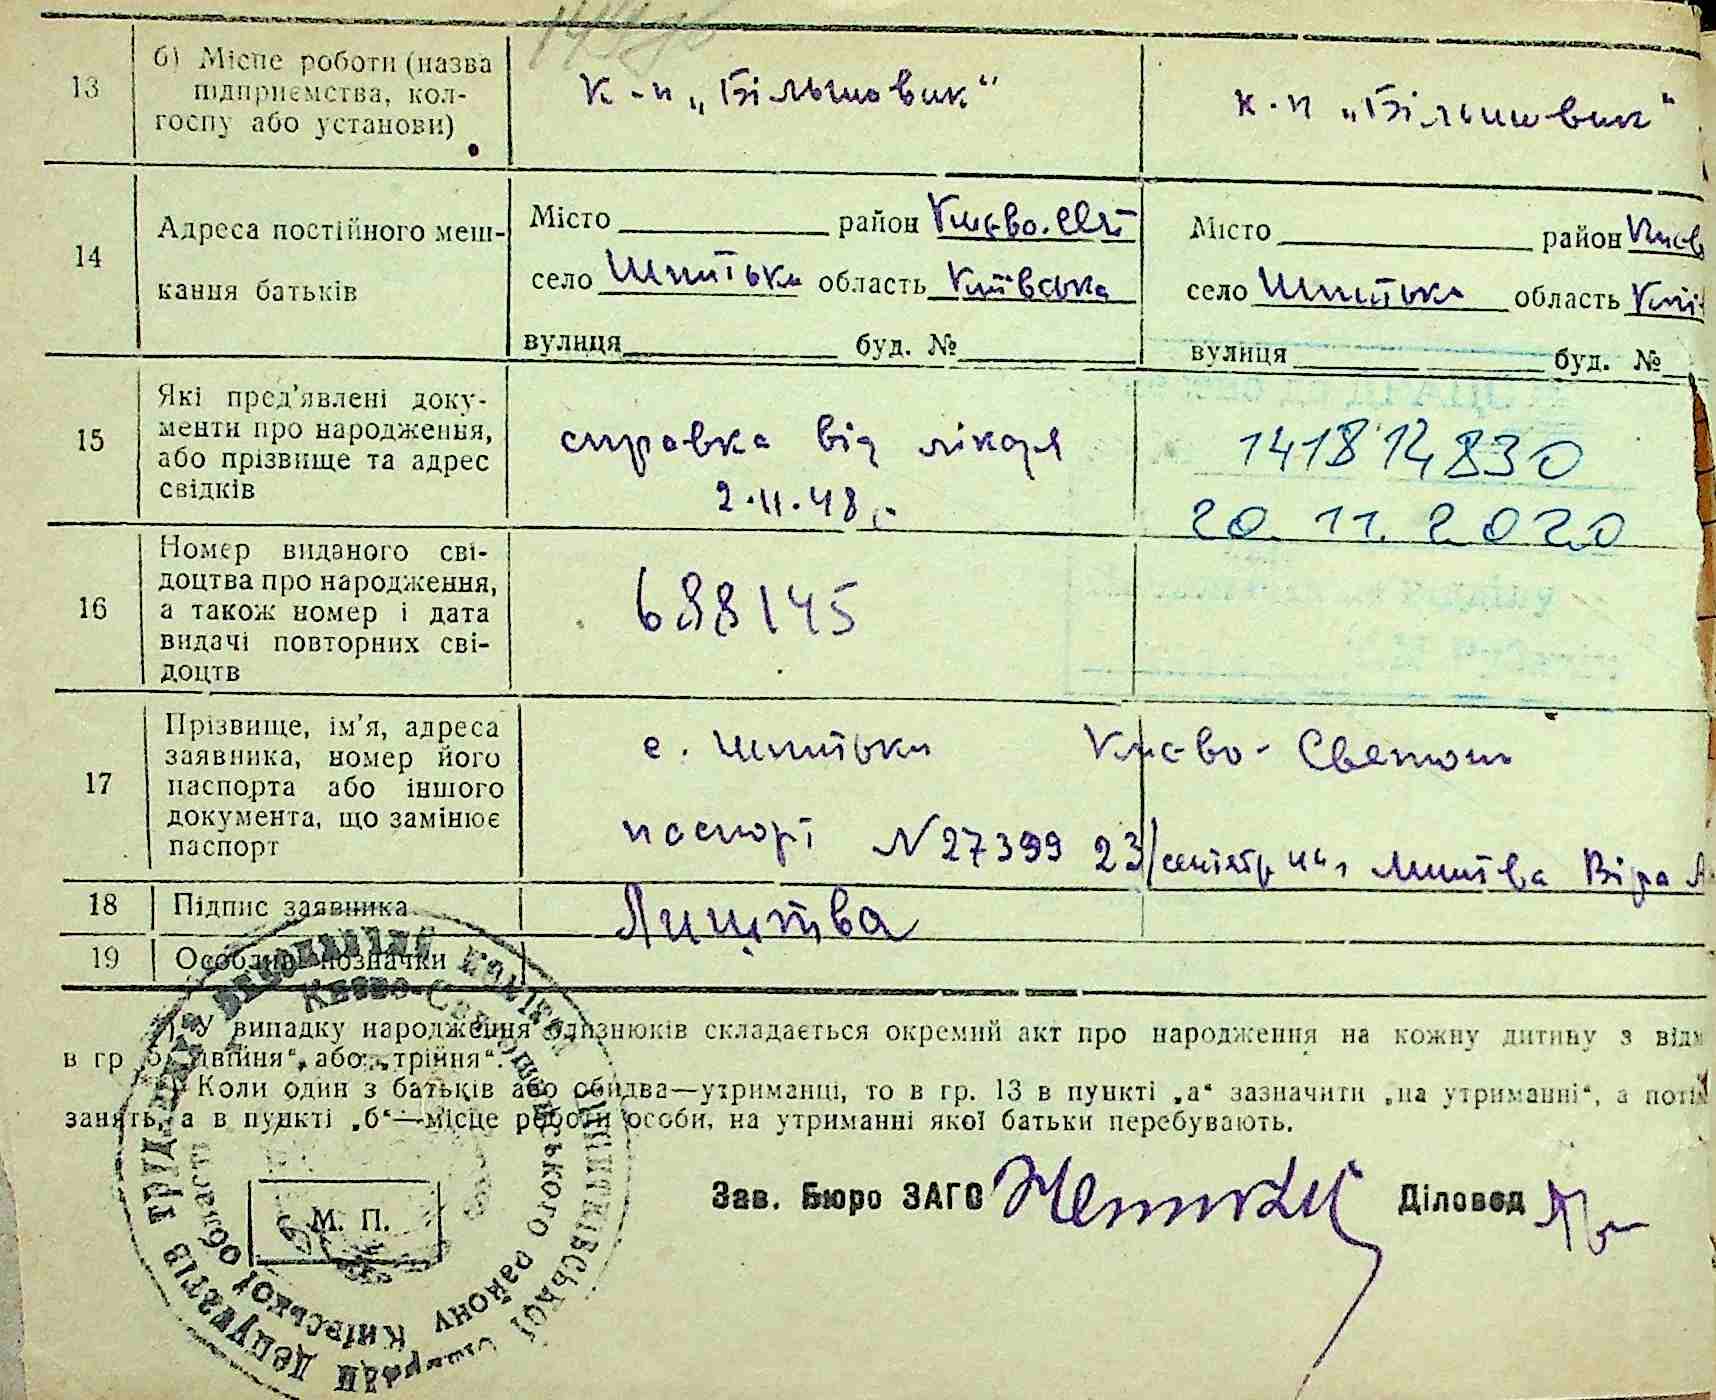 13 б) Місце роботи (назва
підприємства, кол-
госпу або установи)
к-п „Більшовик“ к-п „Більшовик“
14 Адреса постійного меш-
кання батьків
Місто район Києво. Свят
село Шпитьки область Київська
вулиця буд. №
Місто район Києв
село Шпитьки область Киї
вулиця буд. №
15 Які пред'явлені доку-
менти про народження,
або прізвище та адрес
свідків
справка від лікаря
2.11.48
141814830
20.11.2020
16 Номер виданого сві-
доцтва про народження,
а також номер і дата
видачі повторних сві-
доцтв
688145
17 Прізвище, ім'я, адреса
заявника, номер його
паспорта або іншого
документа, що замінює
паспорт
с. Шпитьки Києво-Святош
паспорт N 27399 23/ Лиштва Віра
18 Підпис заявника Лиштва
19 Особливі позначки
*) У випадку народження близнюків складається окремий акт про народження на кожну дитину з відм
в гр. 5 „двійня“, або „трійня“.
Коли один з батьків або обидва—утриманці, то в гр. 13 в пункті „а“ зазначити „на утриманні“, а поті
занять, а в пункті „б“—місце роботи особи, на утриманні якої батьки перебувають.
М. П.
Зав. Бюро ЗАГС Діловод
Шпитківської сільради депутатів труд
Києво-Святошинського району Київської області